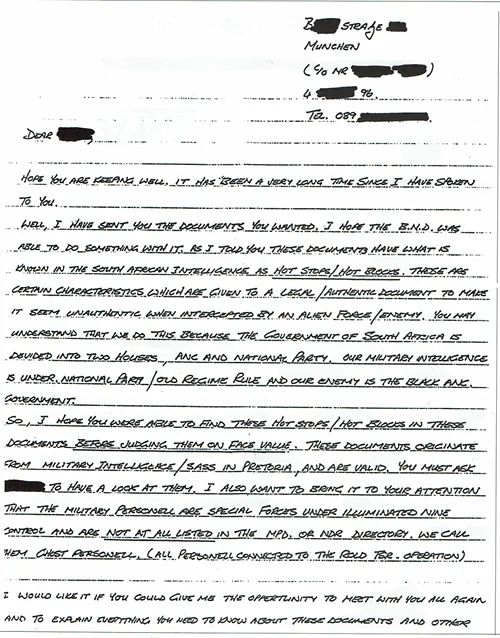 B STRAßE
MUNCHEN
(C/O MR - )
4 96.
TEL. 089
DEAR ,
HOPE YOU ARE KEEPING WELL. IT HAS BEEN A VERY LONG TIME SINCE I HAVE SPOKEN
TO YOU.
WELL, I HAVE SENT YOU THE DOCUMENTS YOU WANTED. I HOPE THE B.N.D. WAS
ABLE TO DO SOMETHING WITH IT. AS I TOLD YOU THESE DOCUMENTS HAVE WHAT IS
KNOWN IN THE SOUTH AFRICAN INTELLIGENCE AS HOT STOPS/HOT BLOCKS. THESE ARE
CERTAIN CHARACTERISTICS WHICH ARE GIVEN TO A LEGAL/AUTHENTIC DOCUMENT TO MAKE
IT SEEM UNAUTHENTIC WHEN INTERCEPTED BY AN ALIEN FORCE/ENEMY. YOU MAY
UNDERSTAND THAT WE DO THIS BECAUSE THE GOVERNMENT OF SOUTH AFRICA IS
DEVIDED INTO TWO HOUSES, ANC AND NATIONAL PARTY. OUR MILITARY INTELLIGENCE
IS UNDER NATIONAL PARTY/OLD REGIME RULE AND OUR ENEMY IS THE BLACK ANC
GOVERNMENT.
SO, I HOPE YOU WERE ABLE TO FIND THESE HOT STOPS/HOT BLOCKS IN THESE
DOCUMENTS BEFORE JUDGING THEM ON FACE VALUE. THESE DOCUMENTS ORIGINATE
FROM MILITARY INTELLIGENCE/SASS IN PRETORIA, AND ARE VALID. YOU MUST ASK
TO HAVE A LOOK AT THEM. I ALSO WANT TO BRING IT TO YOUR ATTENTION
THAT THE MILITARY PERSONELL ARE SPECIAL FORCES UNDER ILLUMINATED NINE
CONTROL AND ARE NOT AT ALL LISTED IN THE MPD. OR NDR DIRECTORY. WE CALL
THEM GHOST PERSONELL. (ALL PERSONELL CONNECTED TO THE OPERATION)
I WOULD LIKE IT IF YOU COULD GIVE ME THE OPERTUNITY TO MEET WITH YOU ALL AGAIN
AND TO EXPLAIN EVERYTHING YOU NEED TO KNOW ABOUT THESE DOCUMENTS AND OTHER